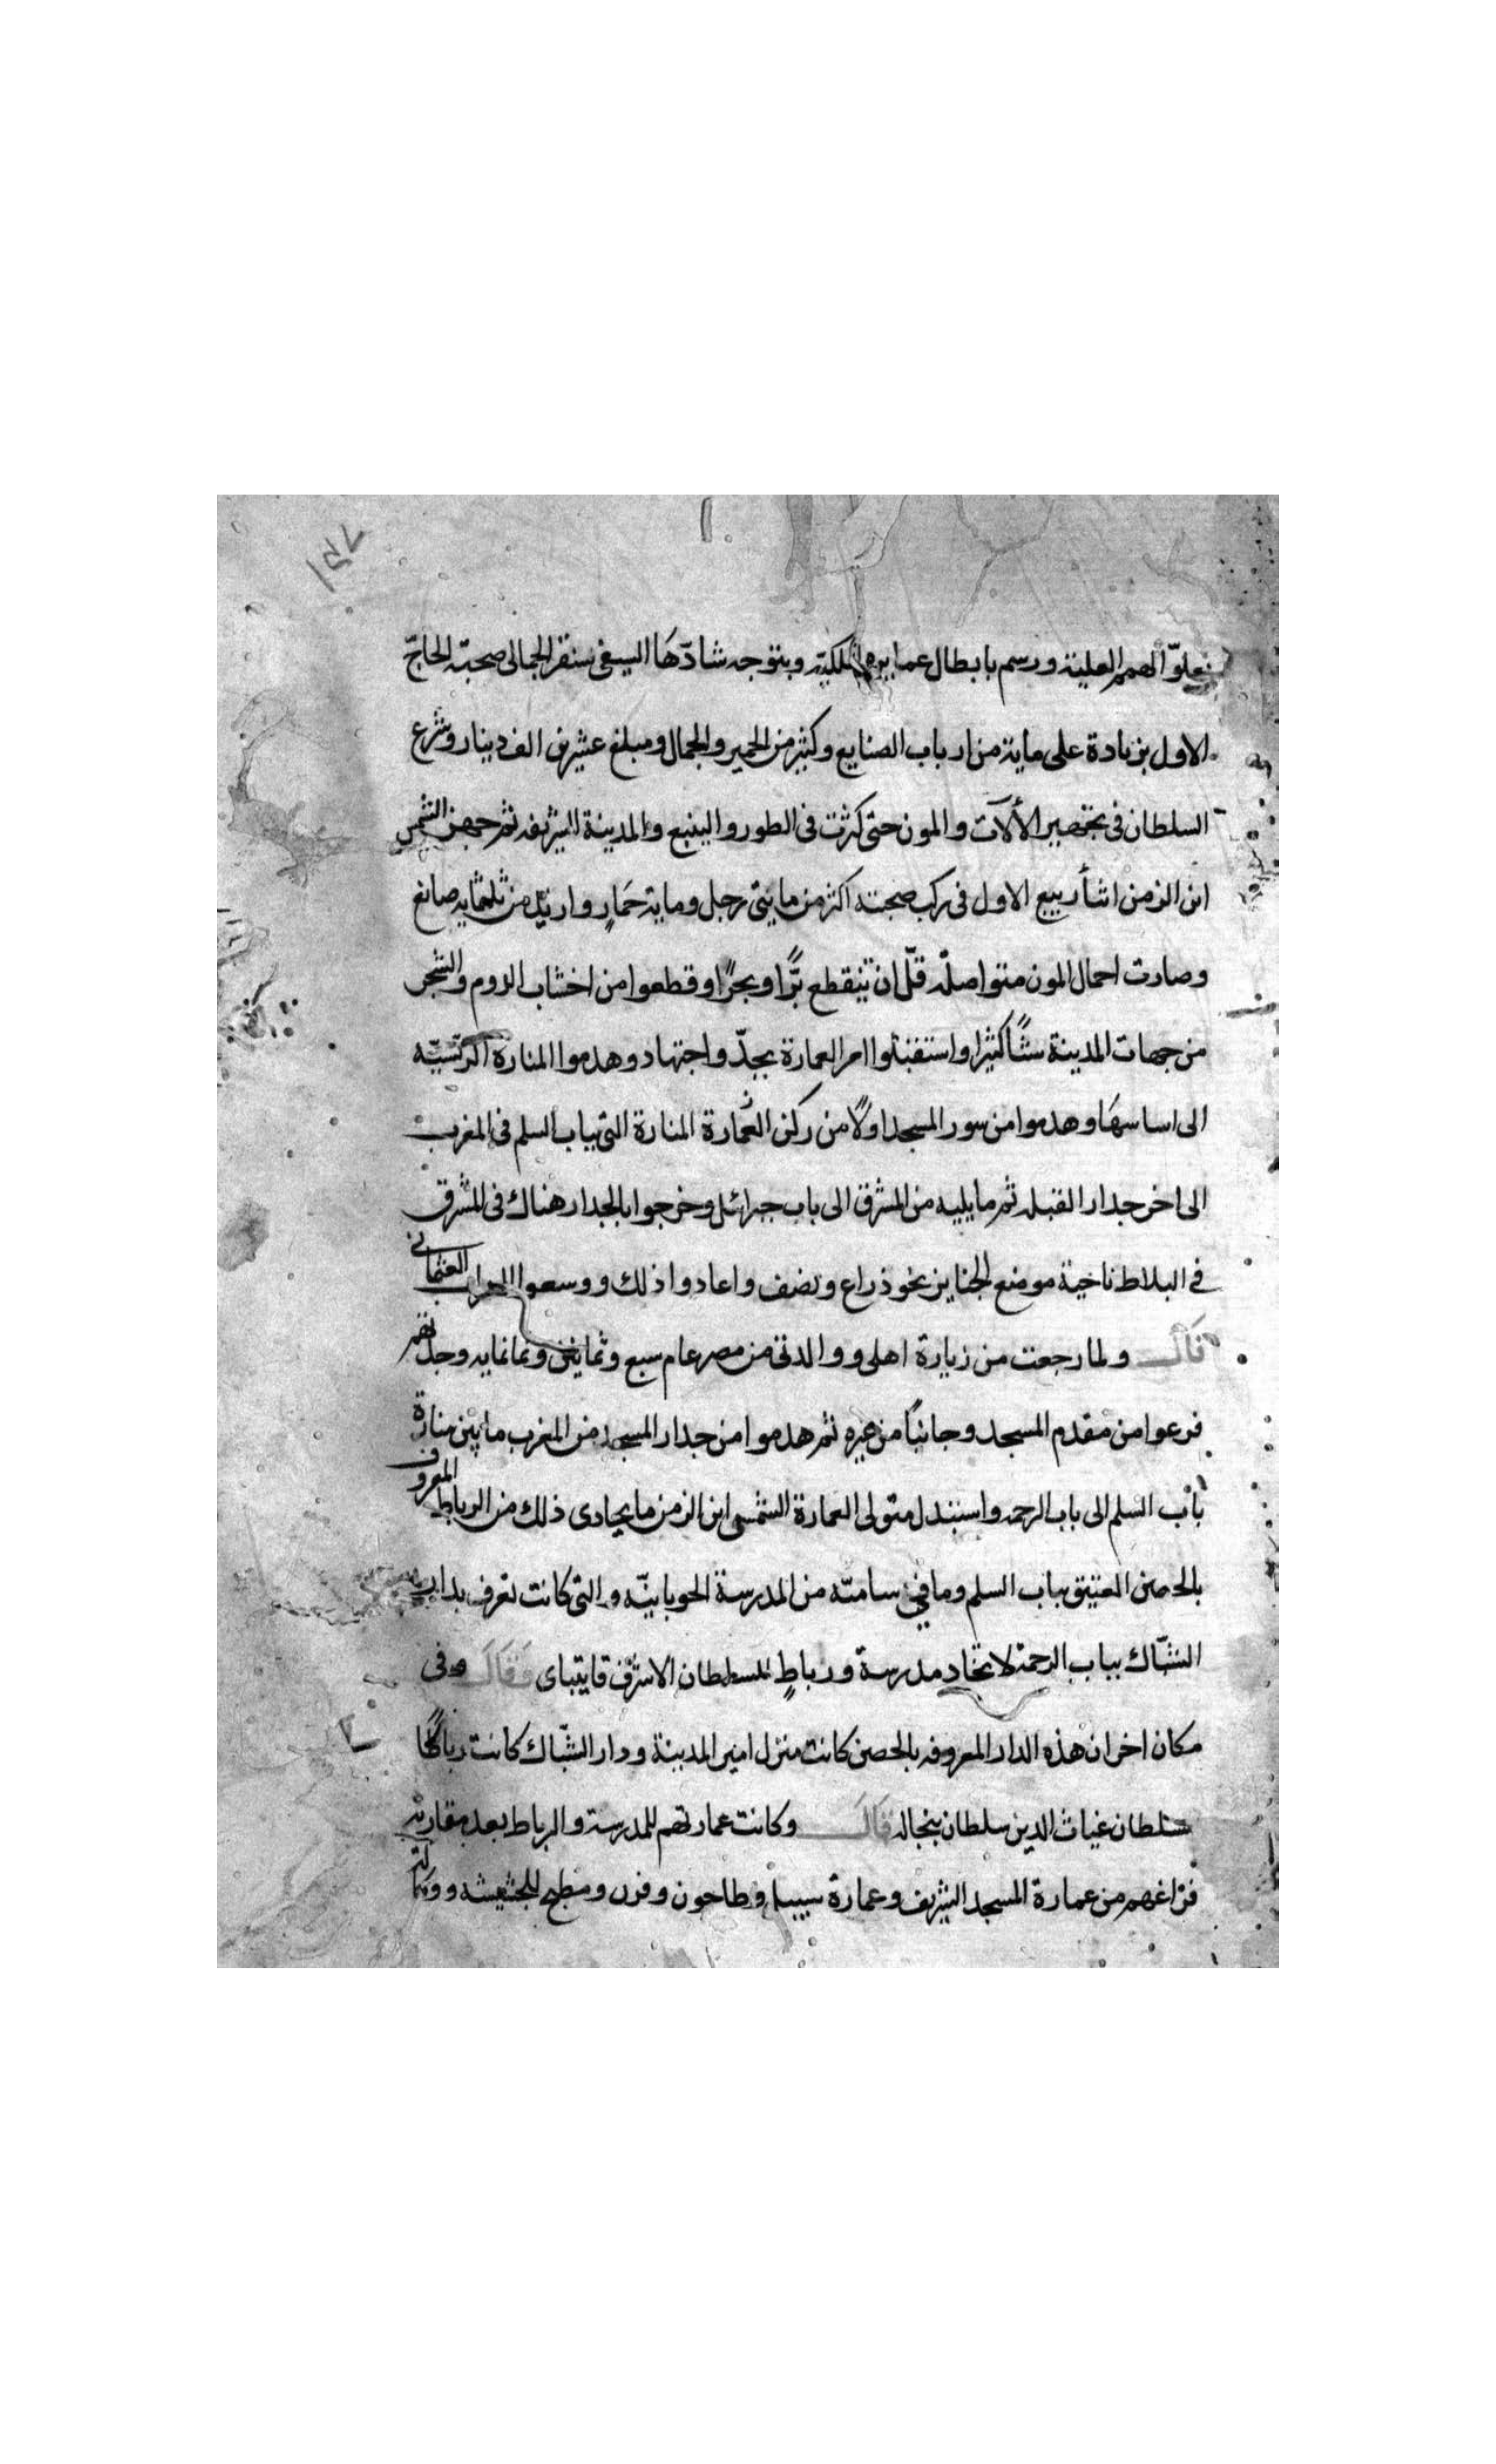 ١٥٧
بعلوّ الهمم العلية ورسم بابطال عمايره المكية وبتوجه شادّها السيفى سنقر الجمالى صحبة الحاجّ
الاول بزيادة على ماية من ارباب الصنايع وكثير من الحمير والجمال ومبلغ عشرين الف دينار وشرع
السلطان فى تجهيز الألآت والمون حتى كثرت فى الطور والينبع والمدينة الشريفه ثم جهز الشمس
ابن الزمن اثنأ ربيع الاول فى ركب صحبته اكثر من مايتى رجل وماية حمار وازيد من ثلثمايه صانع
وصارت احمال المون متواصله قلّ ان تنقطع برًّا وبحرًا وقطعوا من اخشاب الدوم والشجر
من جهات المدينة شئًا كثيرا واستقبلوا امر العمارة بجدّ واجتهاد وهدموا المنارة الرئسيّه
الى اساسها وهدموا من سور المسجد اولًا من ركن العمارة المنارة التى بباب السلم فى المغرب
الى اخر جدار القبله ثم ما يليه من المشرق الى باب جبرائل وخرجوا بالجدار هناك فى المشرق
فى البلاط ناحية موضع الجنايز نحو ذراع ونصف واعادوا ذلك ووسعوا المحراب العثمانى
قال ولما رجعت من زيارة اهلى ووالدتى من مصر عام سبع وثمانين وثمانمايه وجدتهم
فرغوا من مقدم المسجد وجانبًا من غيره ثم هدموا من جدار المسجد من المغرب ما بين منارة
باب السلم الى باب الرحمه واستبدل متولى العمارة الشمسى ابن الزمن ما يحادى ذلك من الرباط المعروف
بالحصن العتيق بباب السلم وما فى سامتّه من المدرسة الجوبانيّه والتى كانت تعرف بدار
الشبّاك بباب الرحمة لاتخاد مدرسة ورباطٍ للسلطان الاشرف قايتباى وقال فى
مكان اخر ان هذه الدار المعروفه بالحصن كانت منزل امير المدينة ودار الشبّاك كانت رباطًا
سلطان غياث الدين سلطان بنجاله قال وكانت عمارتهم للمدرسة والرباط بعد مقاربة
فراغهم من عمارة المسجد الشريف وعمارة سبيل وطاحون وفرن ومطبخ للجشيشه ووكالة